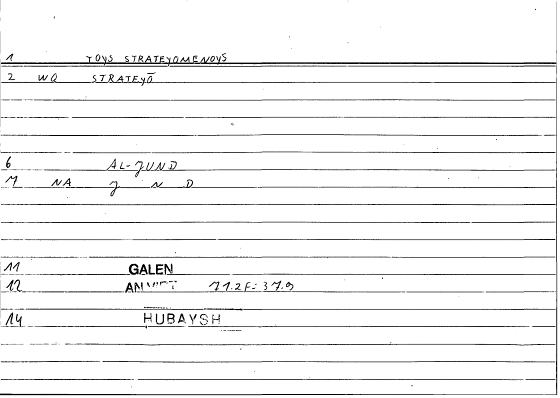 1 TOYS STRATEYOMENOYS
2 WQ STRATEYŌ
6 AL-JUND
7 NA J N D
11 GALEN
12 11.2F=37.9
14 HUBAYSH